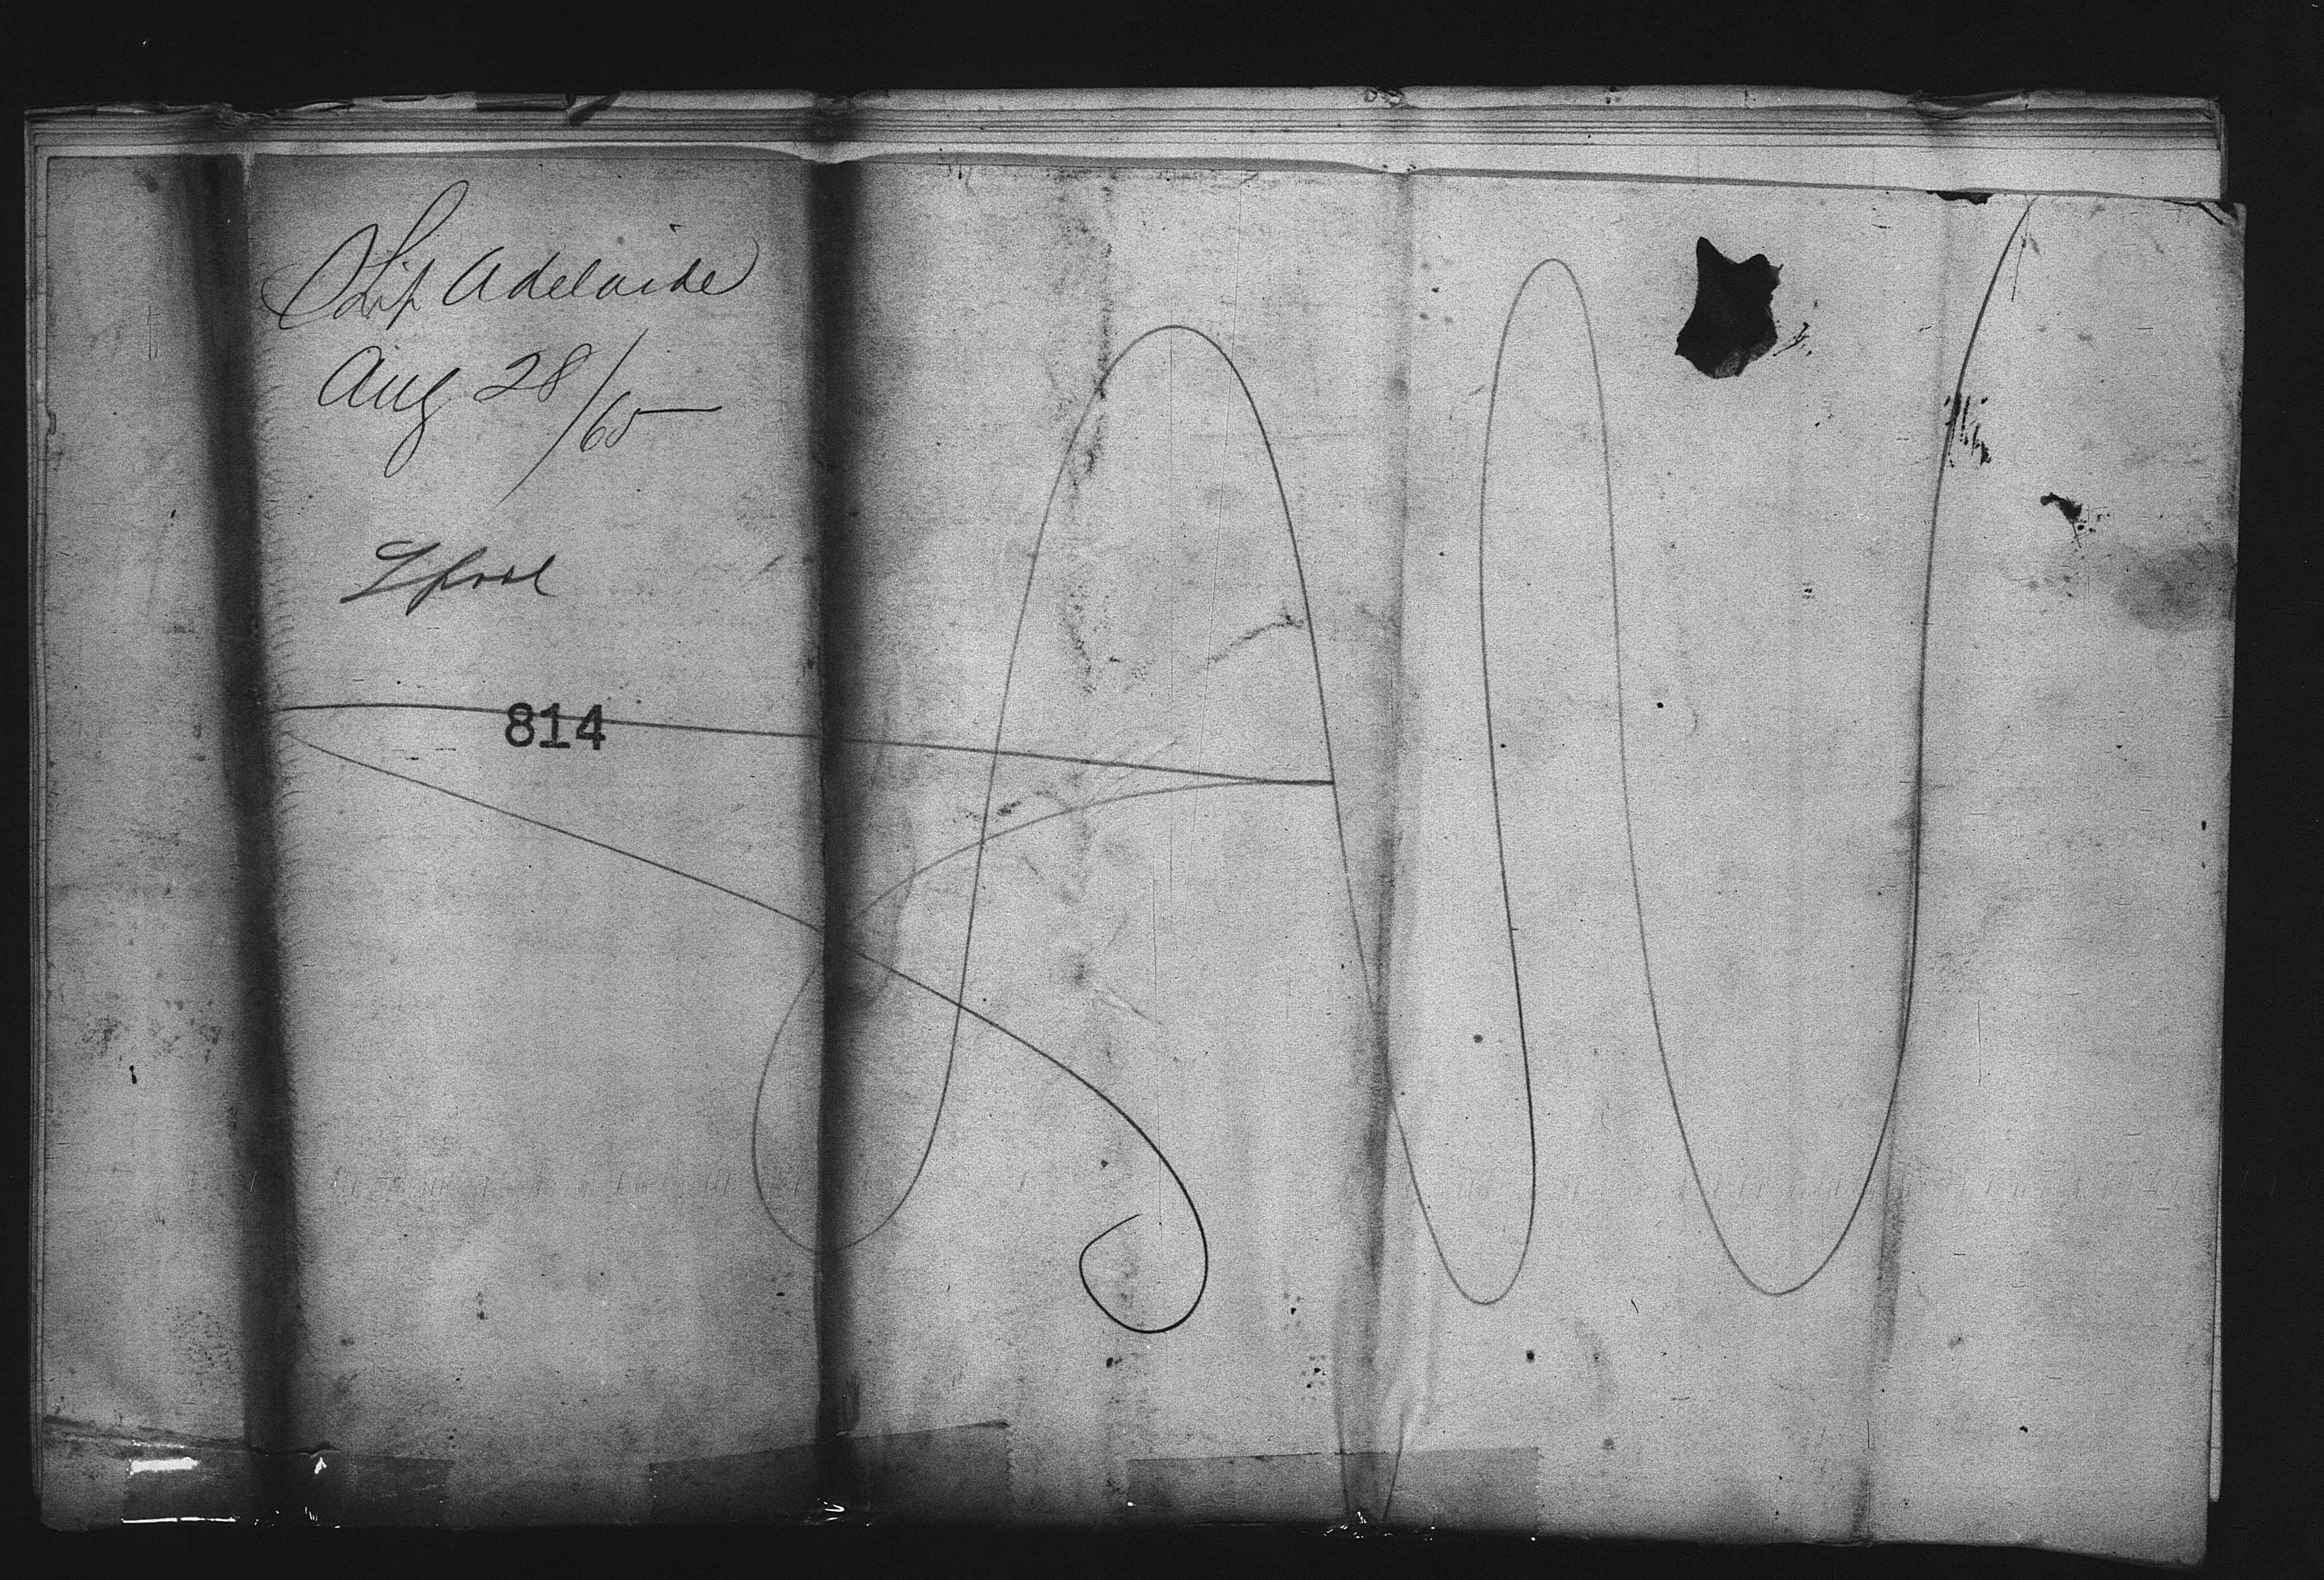 Ship Adelaide
Aug 28/65
Lpool
814